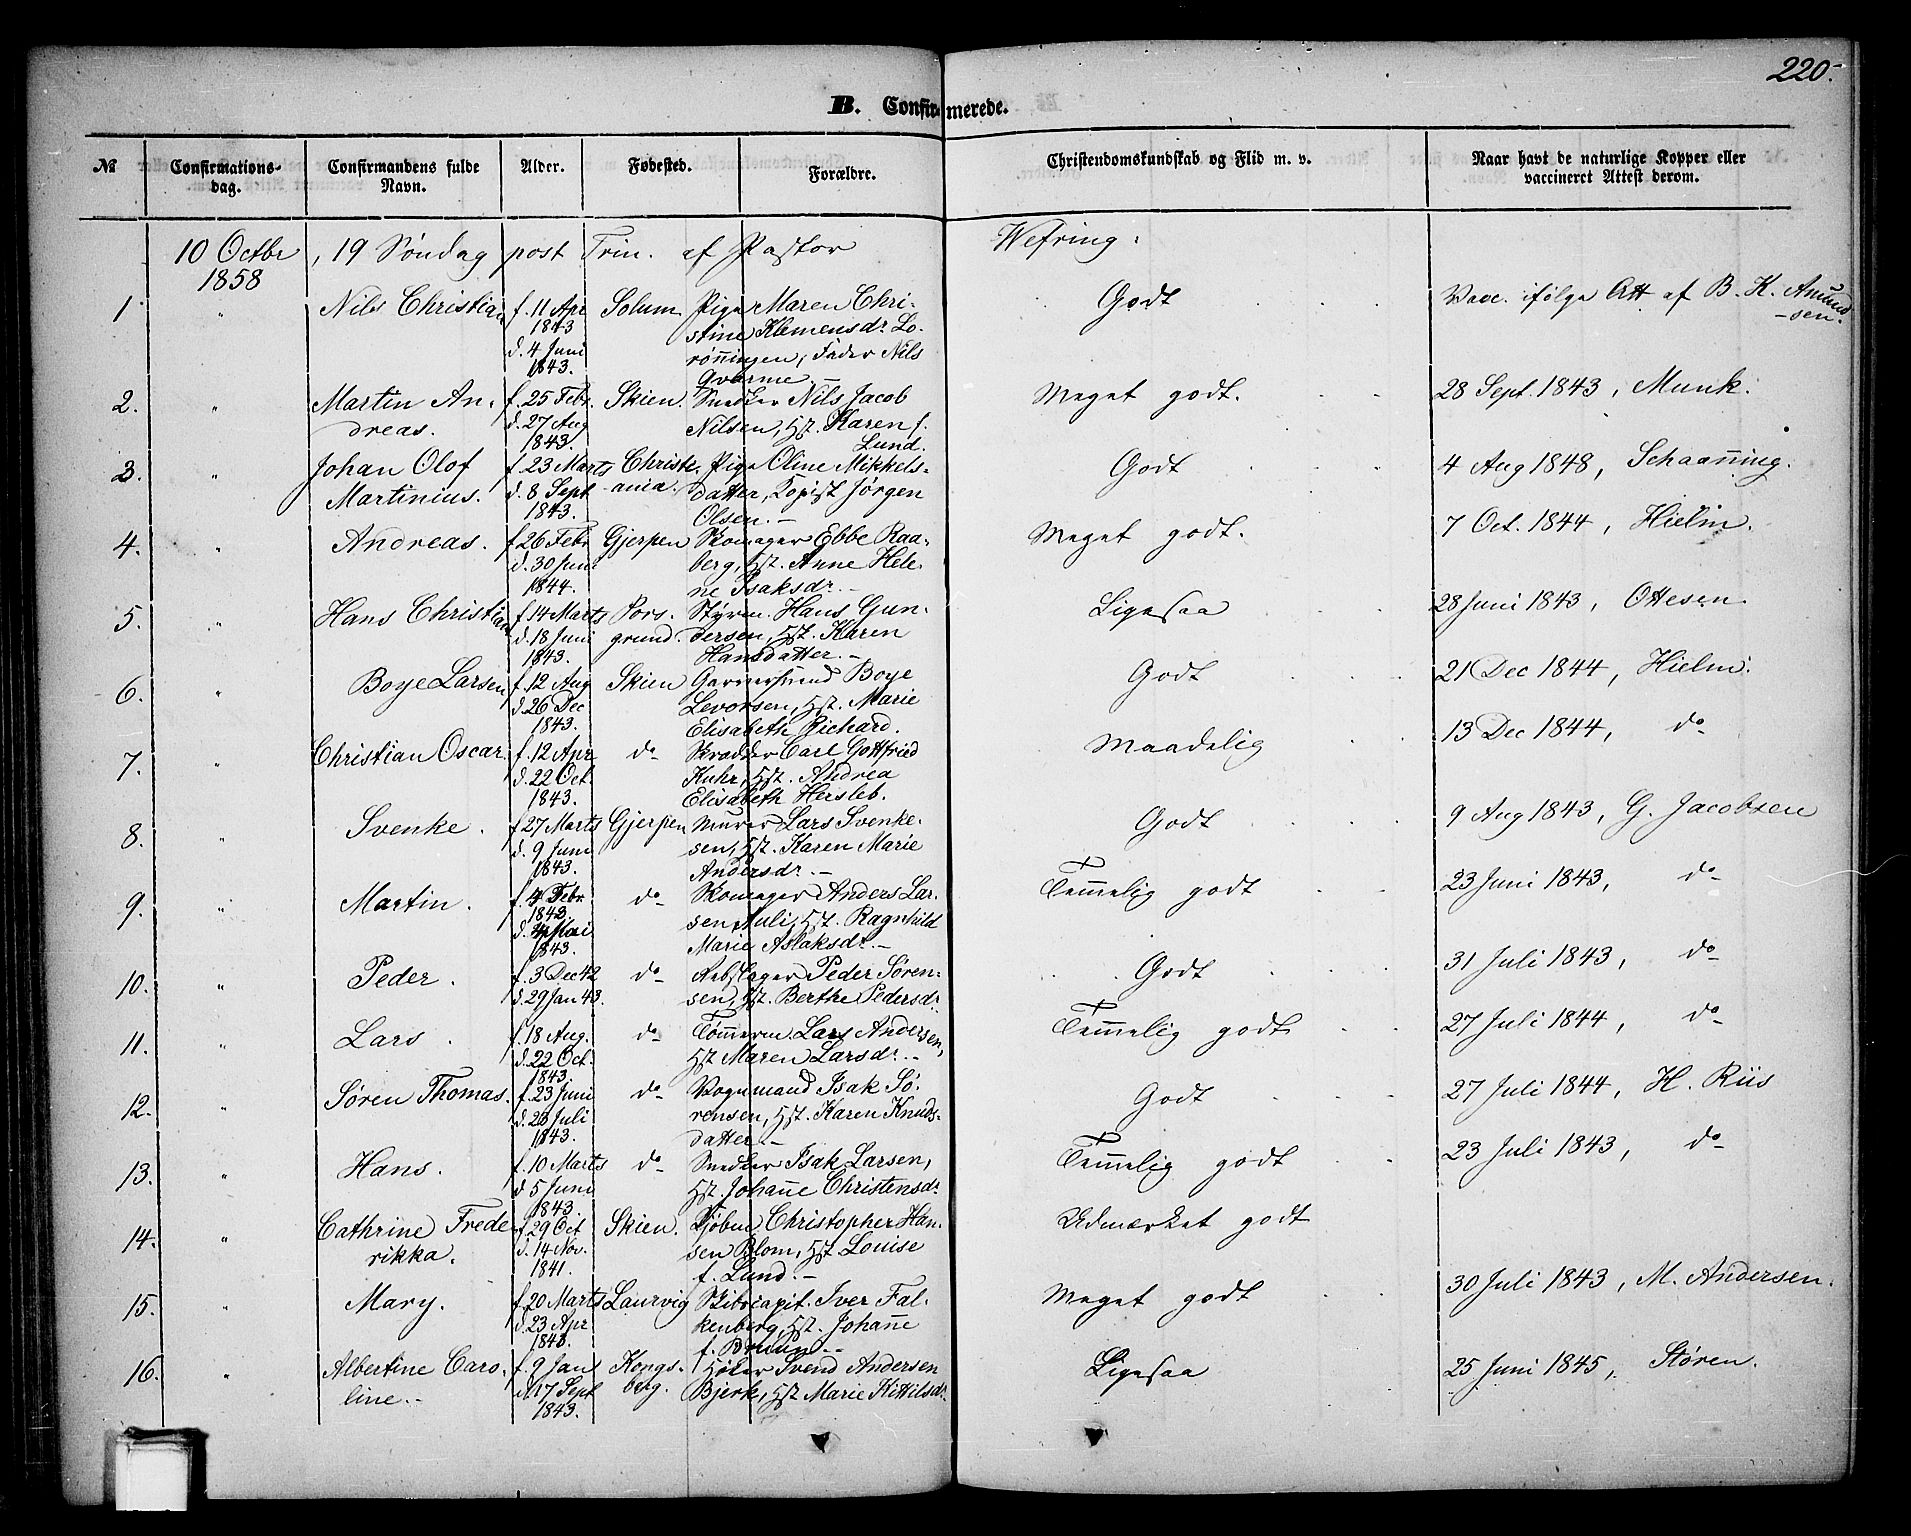 220.
B. Confirmerede.
№ Confirmations-dag. Confirmandens fulde Navn. Alder. Fødested. Forældre. Christendomskundskab og Flid m. v. Naar havt de naturlige Kopper eller vaccineret Attest derom.
10 Octbr 1858, 19 Søndag post Trin. af Pastor Wefring:
1. " Nils Christian f. 11 Apr 1843 d. 4 Juni 1843. Solum. Pige Maren Chri-
stine Klemensdr. Lo-
rönningen, Fader Nils
Qvarme.— Godt Vacc. ifølge Att af B. K. Amund-
sen.
2. " Martin An-
dreas. f. 25 Febr. d. 27 Aug 1843. Skien. Snedker Nils Jacob
Nilsen, Hst. Karen f.
Lund. Meget godt. 28 Sept. 1843, Munk.
3. " Johan Olof
Martinius. f. 23 Marts d. 8 Sept 1843. Christi-
ania. Pige Oline Mikkels-
datter, Kopist Jørgen
Olsen.— Godt 4 Aug 1848, Schaanning.
4. " Andreas. f. 26 Febr d. 30 Juni 1844. Gjerpen Skomager Ebbe Raa-
berg, Hst. Anne Hele-
ne Isaksdr.— Meget godt. 7 Oct. 1844, Hielm.
5. " Hans Christian f. 14 Marts d. 18 Juni 1843. Pors-
grund. Styrm. Hans Gun-
dersen, Hst. Karen
Hansdatter.— Ligesaa 28 Juni 1843, Ottesen.
6. " Boye Larsen f. 12 Aug d. 26 Dec 1843. Skien Garversvend Boye
Levorsen, Hst. Marie
Elisabeth Richard. Godt 21 Dec 1844, Hielm.
7. " Christian Oscar. f. 12 Apr d. 22 Oct. 1843. do Skrædder Carl Gottfried
Kuhr, Hst. Andrea
Elisabeth Hersleb. Maadelig 13 Dec 1844, do
8. " Svenke. f. 27 Marts d. 9 Juni 1843. Gjerpen Murer Lars Svenke-
sen, Hst. Karen Marie
Andersdr.— Godt 9 Aug 1843, G. Jacobsen
9. " Martin. f. 4 Febr 1843 d. Mai 1843. do Skomager Anders Lar-
sen Huli, Hst. Ragnhild
Marie Aslaksdr.— Temmelig godt 23 Juni 1843, do
10. " Peder. f. 3 Dec 42 d. 29 Jan 43. do Rebslager Peder Søren-
sen, Hst. Berthe Pedersdr. Godt 31 Juli 1843, do
11. " Lars. f. 18 Aug. d. 22 Oct. 1843. do Tømmerm. Lars Andersen,
Hst Maren Larsdr.— Temmelig godt 27 Juli 1844, do
12. " Søren Thomas. f. 23 Juni d. 23 Juli 1843. do Vognmand Isak Sø-
rensen, Hst. Karen Knuds-
datter.— Godt 27 Juli 1844, H. Riis
13. " Hans. f. 10 Marts d 5 Juni 1843 do Snedker Isak Larsen,
Hst. Johanne Christensdr. Temmelig godt 23 Juli 1843, do
14. " Cathrine Frede-
rikka. f. 29 Oct d. 14 Nov. 1841. Skien. Kjøbm. Christopher Han-
sen Blom, Hst Louise
f. Lund.— Udmærket godt
15. " Mary. f. 20 Marts d. 23 Apr 1843. Laurvig Skibscapit. Iver Fal-
kenberg, Hst. Johanne
f. Bruun.— Meget godt 30 Juli 1843, M. Andersen.
16. " Albertine Caro-
line.— f. 9 Jan d. 17 Sept 1843. Kongs-
berg. Høker Svend Andersen
Bjerk, Hst Marie Kittilsdr. Ligesaa 25 Juni 1845, Støren.